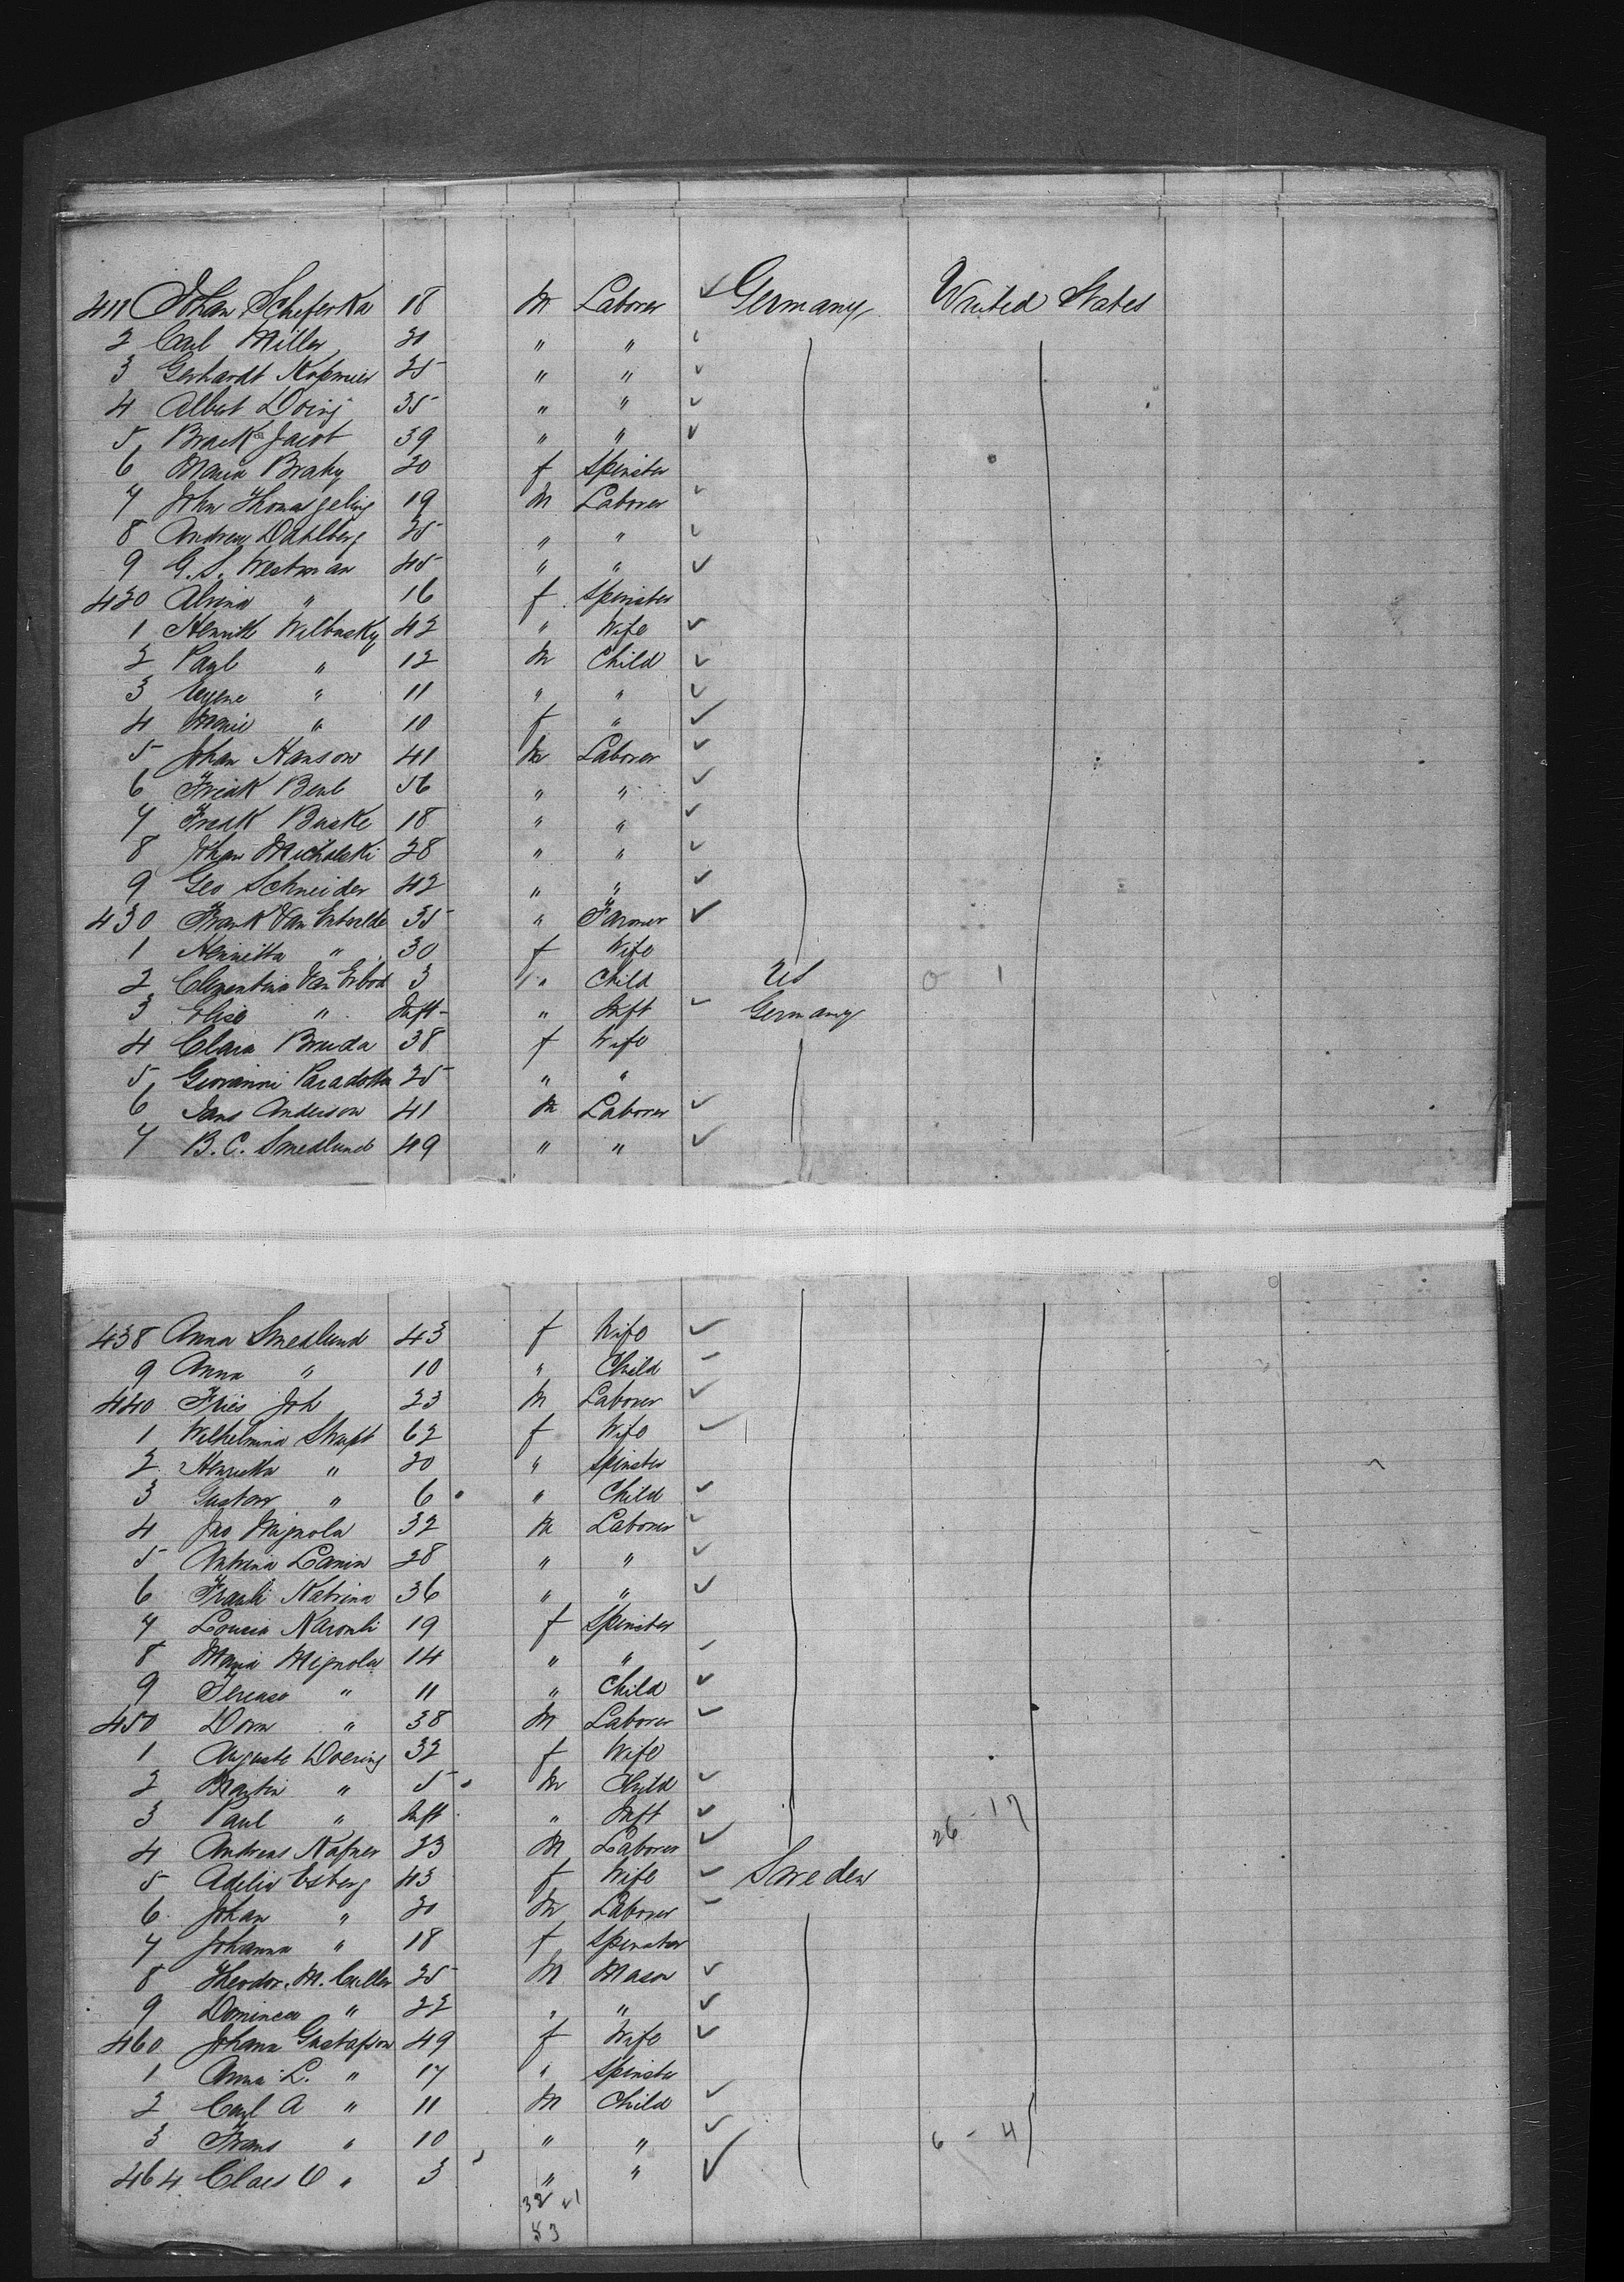 411 Johan Scheferka 18 M Laborer ✓ Germany United States
2 Carl Miller 31 " " ✓
3 Gerhardt Kopmier 25 " " ✓
4 Albert Doing 35 " " ✓
5 Brack Jacob 39 " " ✓
6 Maria Braky 20 f Spinster
7 John Thomasgeling 19 M Laborer ✓
8 Andrew Dahlberg 25 " " ✓
9 G. S. Westman 45 " " ✓
420 Alvina " 16 f Spinster
1 Henritt Wilbusky 42 " Wife ✓
2 Paul " 12 M Child ✓
3 Eugene " 11 " " ✓
4 Marie " 10 f " ✓
5 Johan Hanson 41 M Laborer ✓
6 Fredk Benl 56 " " ✓
7 Fredk Buske 18 " " ✓
8 Johan Michalski 28 " " ✓
9 Geo Schneider 42 " " ✓
430 Frank Van Erbvelde 35 " Farmer ✓
1 Henrietta " 30 f Wife
2 Clementina Van Erbod 3 " Child US 0 1
3 Elise " Inft " Inft ✓ Germany
4 Clara Breida 38 f Wife
5 Giovanni Paradotta 25 " "
6 Jans Anderson 41 M Laborer ✓
7 B. C. Smedlund 49 " " ✓
438 Anna Smedlund 43 f Wife ✓
9 Anna " 10 " Child ✓
440 Fries Joh 23 M Laborer ✓
1 Wilhelmina Shapt 62 f Wife ✓
2 Henrietta " 20 " Spinster
3 Gustav " 6 " Child ✓
4 Jno Mignola 32 M Laborer ✓
5 Antonia Lanin 28 " " ✓
6 Frauli Katrina 36 " " ✓
7 Loucia Naronli 19 f Spinster
8 Maria Mignola 14 " " ✓
9 Terease " 11 " Child ✓
450 Dom " 38 M Laborer ✓
1 Auguste Doering 32 f Wife
2 Martin " 5 M Child ✓
3 Paul " Inft " Inft ✓ 26 - 17
4 Andreas Kafner 23 M Laborer ✓
5 Adelia Esberg 43 f Wife ✓ Sweden
6 Johan " 21 M Laborer ✓
7 Johanna " 18 f Spinster
8 Theodor. M. Culler 25 M Mason ✓
9 Dominca " 22 " " ✓
460 Johana Gustafson 49 f Wife ✓
1 Anna L. " 17 " Spinster
2 Carl A " 11 M Child ✓
3 Frans " 10 " " ✓ 6 - 4
464 Claes O " 3 " " ✓
32 21
53